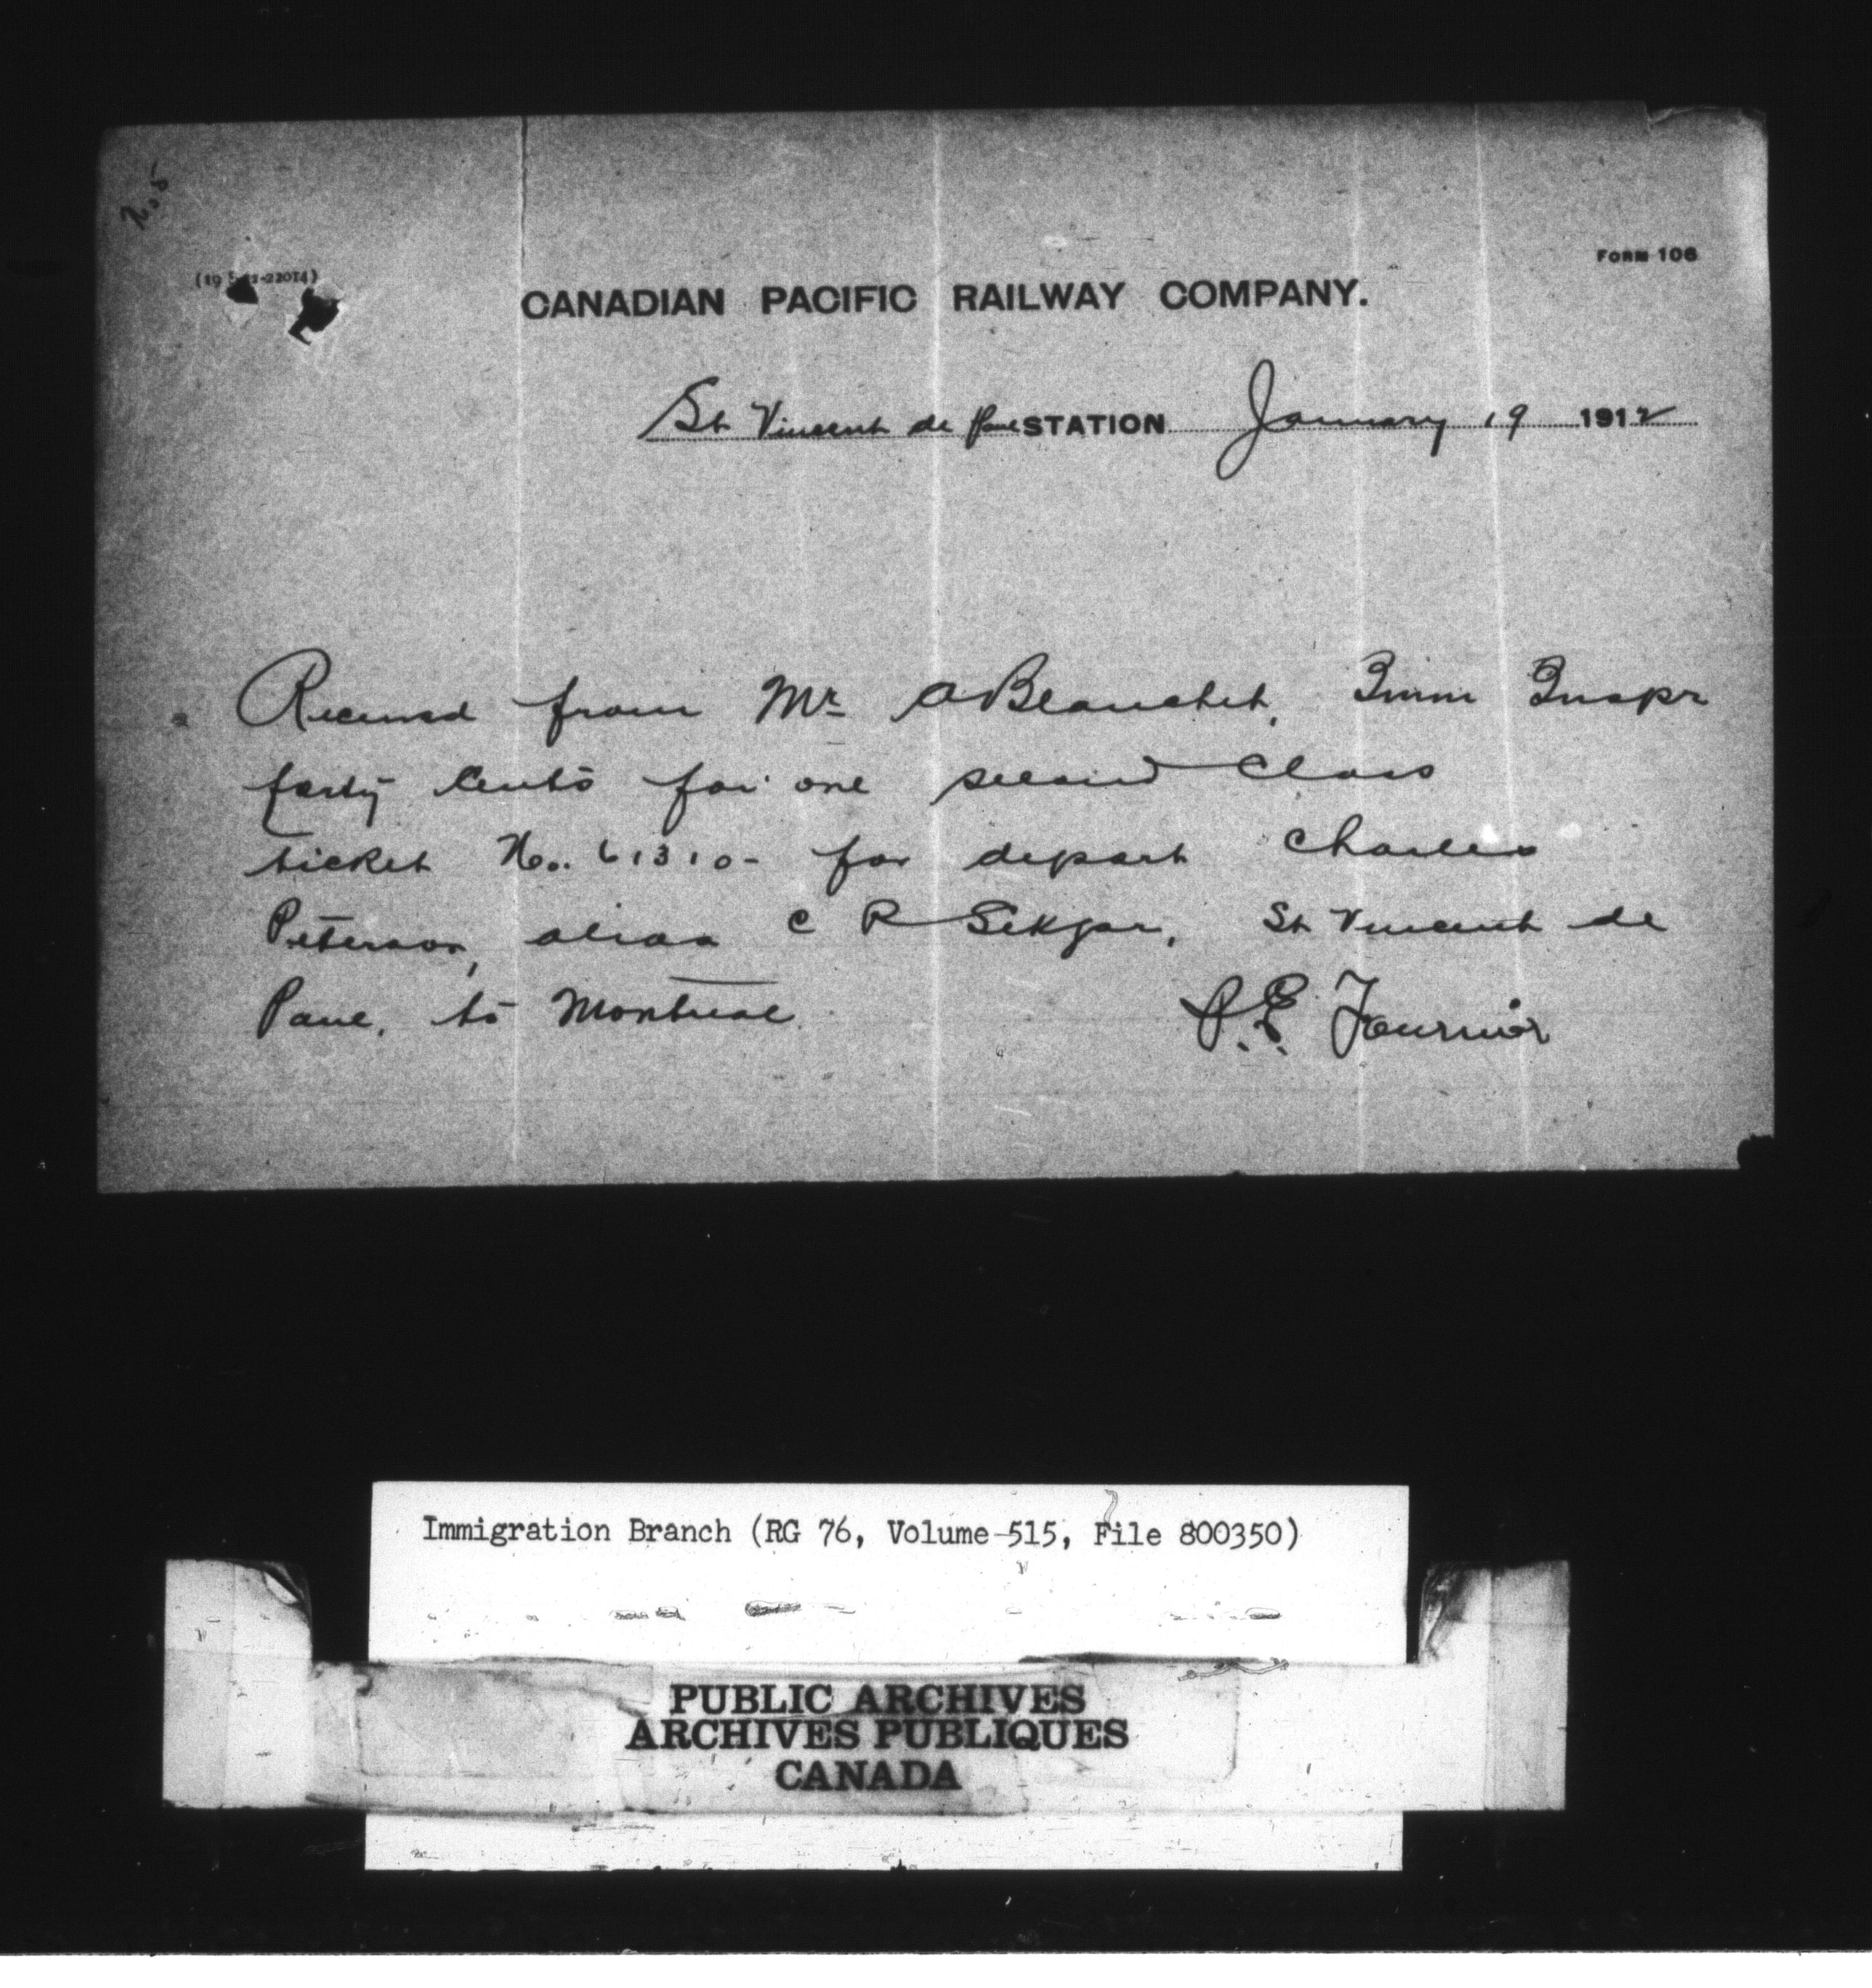 No 5
FORM 106
CANADIAN PACIFIC RAILWAY COMPANY.
St Vincent de Paul STATION January 19 1912
Received from Mr A Blanchet, Imm Inspr
forty cents for one second class
ticket No. 61310- for deport Charles
Peterson, alias C R Sekjar, St Vincent de
Paul, to Montreal.
P.E. Fournier
Immigration Branch (RG 76, Volume 515, File 800350)
PUBLIC ARCHIVES
ARCHIVES PUBLIQUES
CANADA